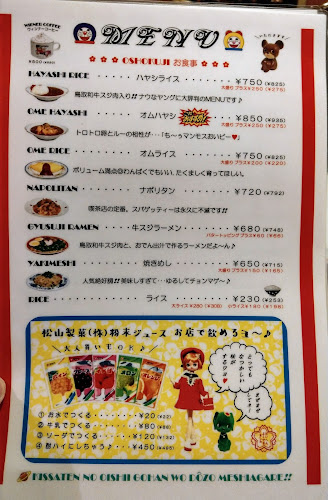 WIENER COFFEE
ウィンナーコーヒー
MENU
OSHOKUJI お食事
HAYASHI RICE ・・・・・ ハヤシライス ・・・・・ ¥750 (¥825)
大盛りプラス¥250 (¥275)
鳥取和牛スジ肉入り!!ナウなヤングに大評判のMENUです♪
OME HAYASHI ・・・・・ オムハヤシ ¥850 (¥935)
大盛りプラス¥250 (¥275)
トロトロ卵とルーの相性が…「ち〜ぅマンモスおいピー♥」
OME RICE ・・・・・ オムライス ・・・・・ ¥750 (¥825)
大盛りプラス¥200 (¥220)
ボリューム満点◎わんぱくでもいい、たくましく育ってほしい。
NAPOLITAN ・・・・・ ナポリタン ・・・・・ ¥720 (¥792)
喫茶店の定番。スパゲッティーは永久に不滅です!!
GYUSUJI RAMEN ・・・ 牛スジラーメン ・・・・ ¥680 (¥748)
バタートッピングプラス¥60 (¥66)
鳥取和牛スジ肉と、おでん出汁で作るラーメンだよ〜ん♪
YAKIMESHI ・・・・・ 焼きめし ・・・・・ ¥650 (¥715)
大盛りプラス¥150 (¥165)
人気絶好鯛!!美味しすぎて…ゆるしてチョンマゲ〜♪
RICE ・・・・・ ライス ・・・・・ ¥230 (¥253)
大ライス¥280 (¥308) 小ライス¥180 (¥198)
松山製菓(株)粉末ジュース お店で飲めるヨ〜♪
大人買いもOK♪
とっても
なつかしい
味が
するワヨ♥
まぜまぜ
してネ!
① お水でつくる・・・・・¥20 (¥22)
② 牛乳でつくる・・・・・¥80 (¥88)
③ ソーダでつくる・・・・¥120 (¥132)
④ 酎ハイにしちゃう♪・・・¥450 (¥495)
KISSATEN NO OISHII GOHAN WO DŌZO MESHIAGARE!!